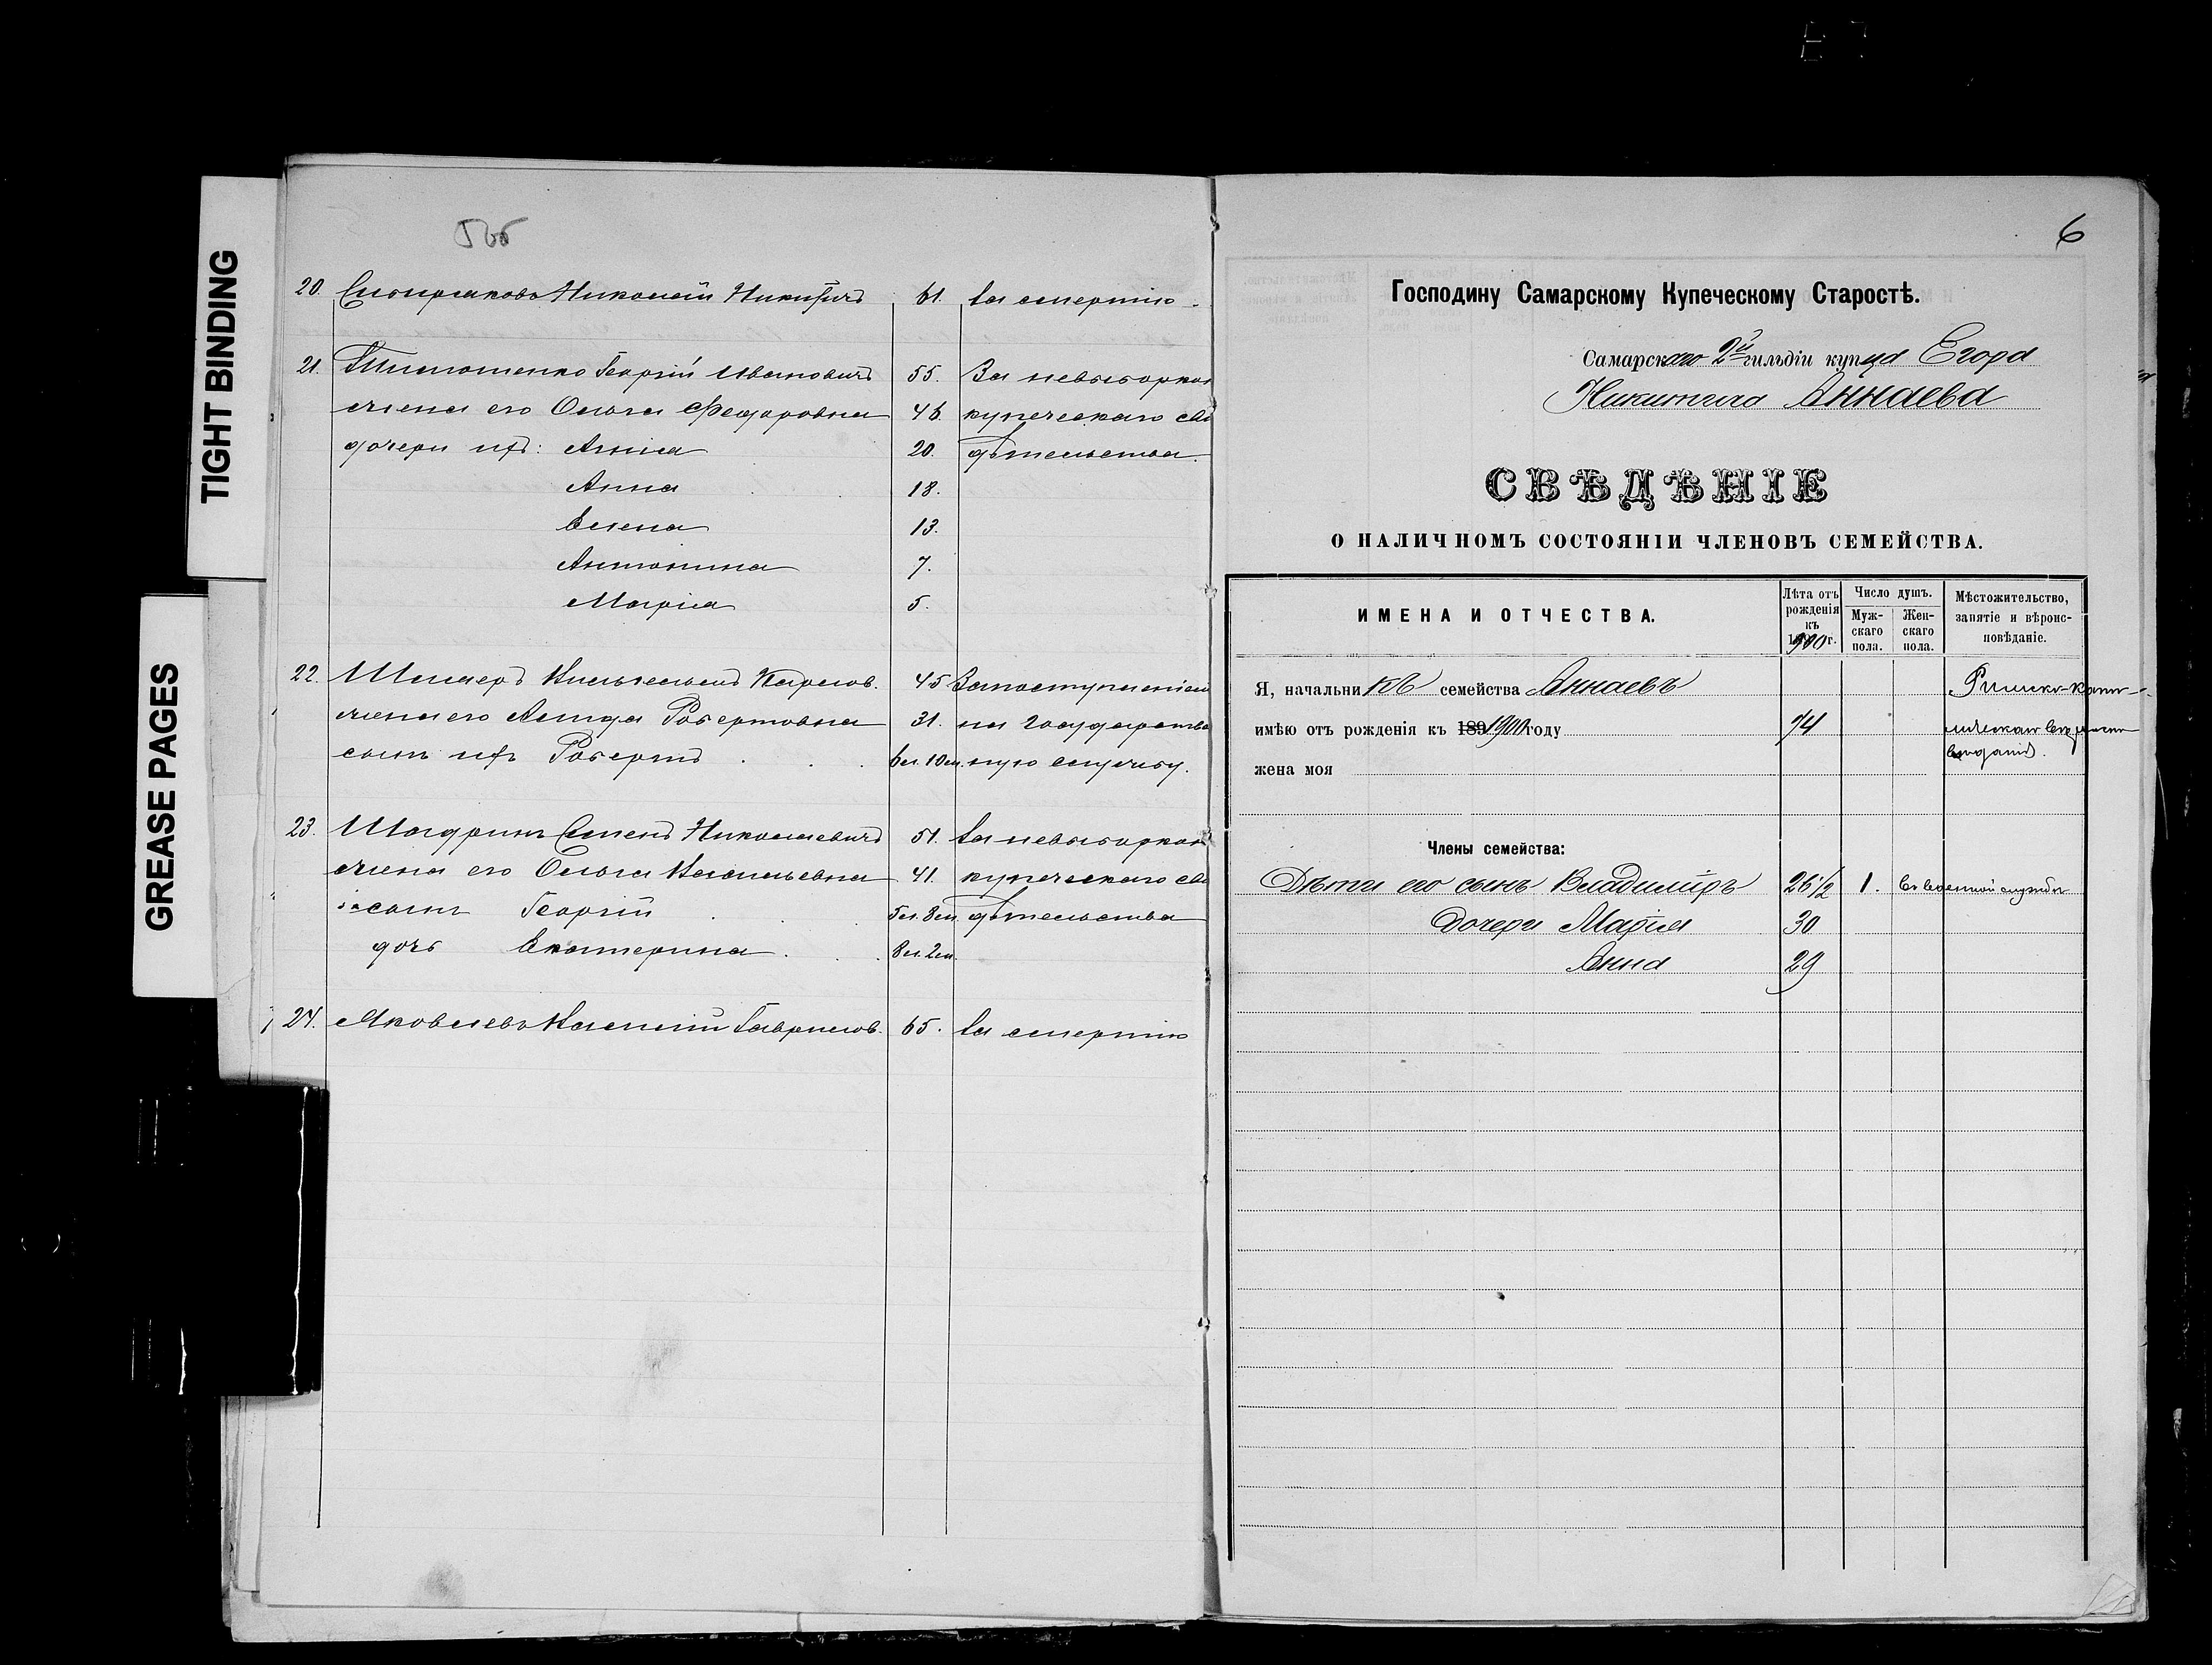 TIGHT BINDING
GREASE PAGES
5об
20. Сибиряковъ Николай Никитичъ 61. За смертію.
21. Тимошенко Георгій Ивановичъ 55. За невыборкою
жена его Ольга Федоровна 46. купеческаго сви
дочери ихъ: 20. дѣтельства.
Анна 18.
Елена 13.
Антонина 7.
Марія 5.
22. Вильгельмъ Карлов. 45 За поступленіем
жена его Робертовна 31. на государствен
сынъ ихъ Робертъ 6 л. 10 м. ную службу.
23. Шадринъ Семенъ Николаевичъ 51. За невыборкою
жена его Ольга Васильевна 41. купеческаго сви
сынъ Георгій 5 л. 8 м. дѣтельства
дочь Екатерина 8 л. 2 м.
24. Яковлевъ Василій Гаврилов. 65. За смертію
6
Господину Самарскому Купеческому Старостѣ.
Самарскаго 2й гильдіи купца Егора
Никитича Аннаева
СВѢДѢНІЕ
О НАЛИЧНОМЪ СОСТОЯНІИ ЧЛЕНОВЪ СЕМЕЙСТВА.
ИМЕНА И ОТЧЕСТВА.
Лѣта отъ рожденія къ 1900 г.
Число душъ.
Мужскаго пола.
Женскаго пола.
Мѣстожительство, занятіе и вѣроисповѣданіе.
Я, начальникъ семейства Аннаевъ Римско-като-
имѣю отъ рожденія къ 189 1900 году 74 лическаго вѣроис
жена моя
Члены семейства:
Дѣти его сынъ Владиміръ 26½ 1. Въ военной службѣ
Дочери Марія 30
Анна 29